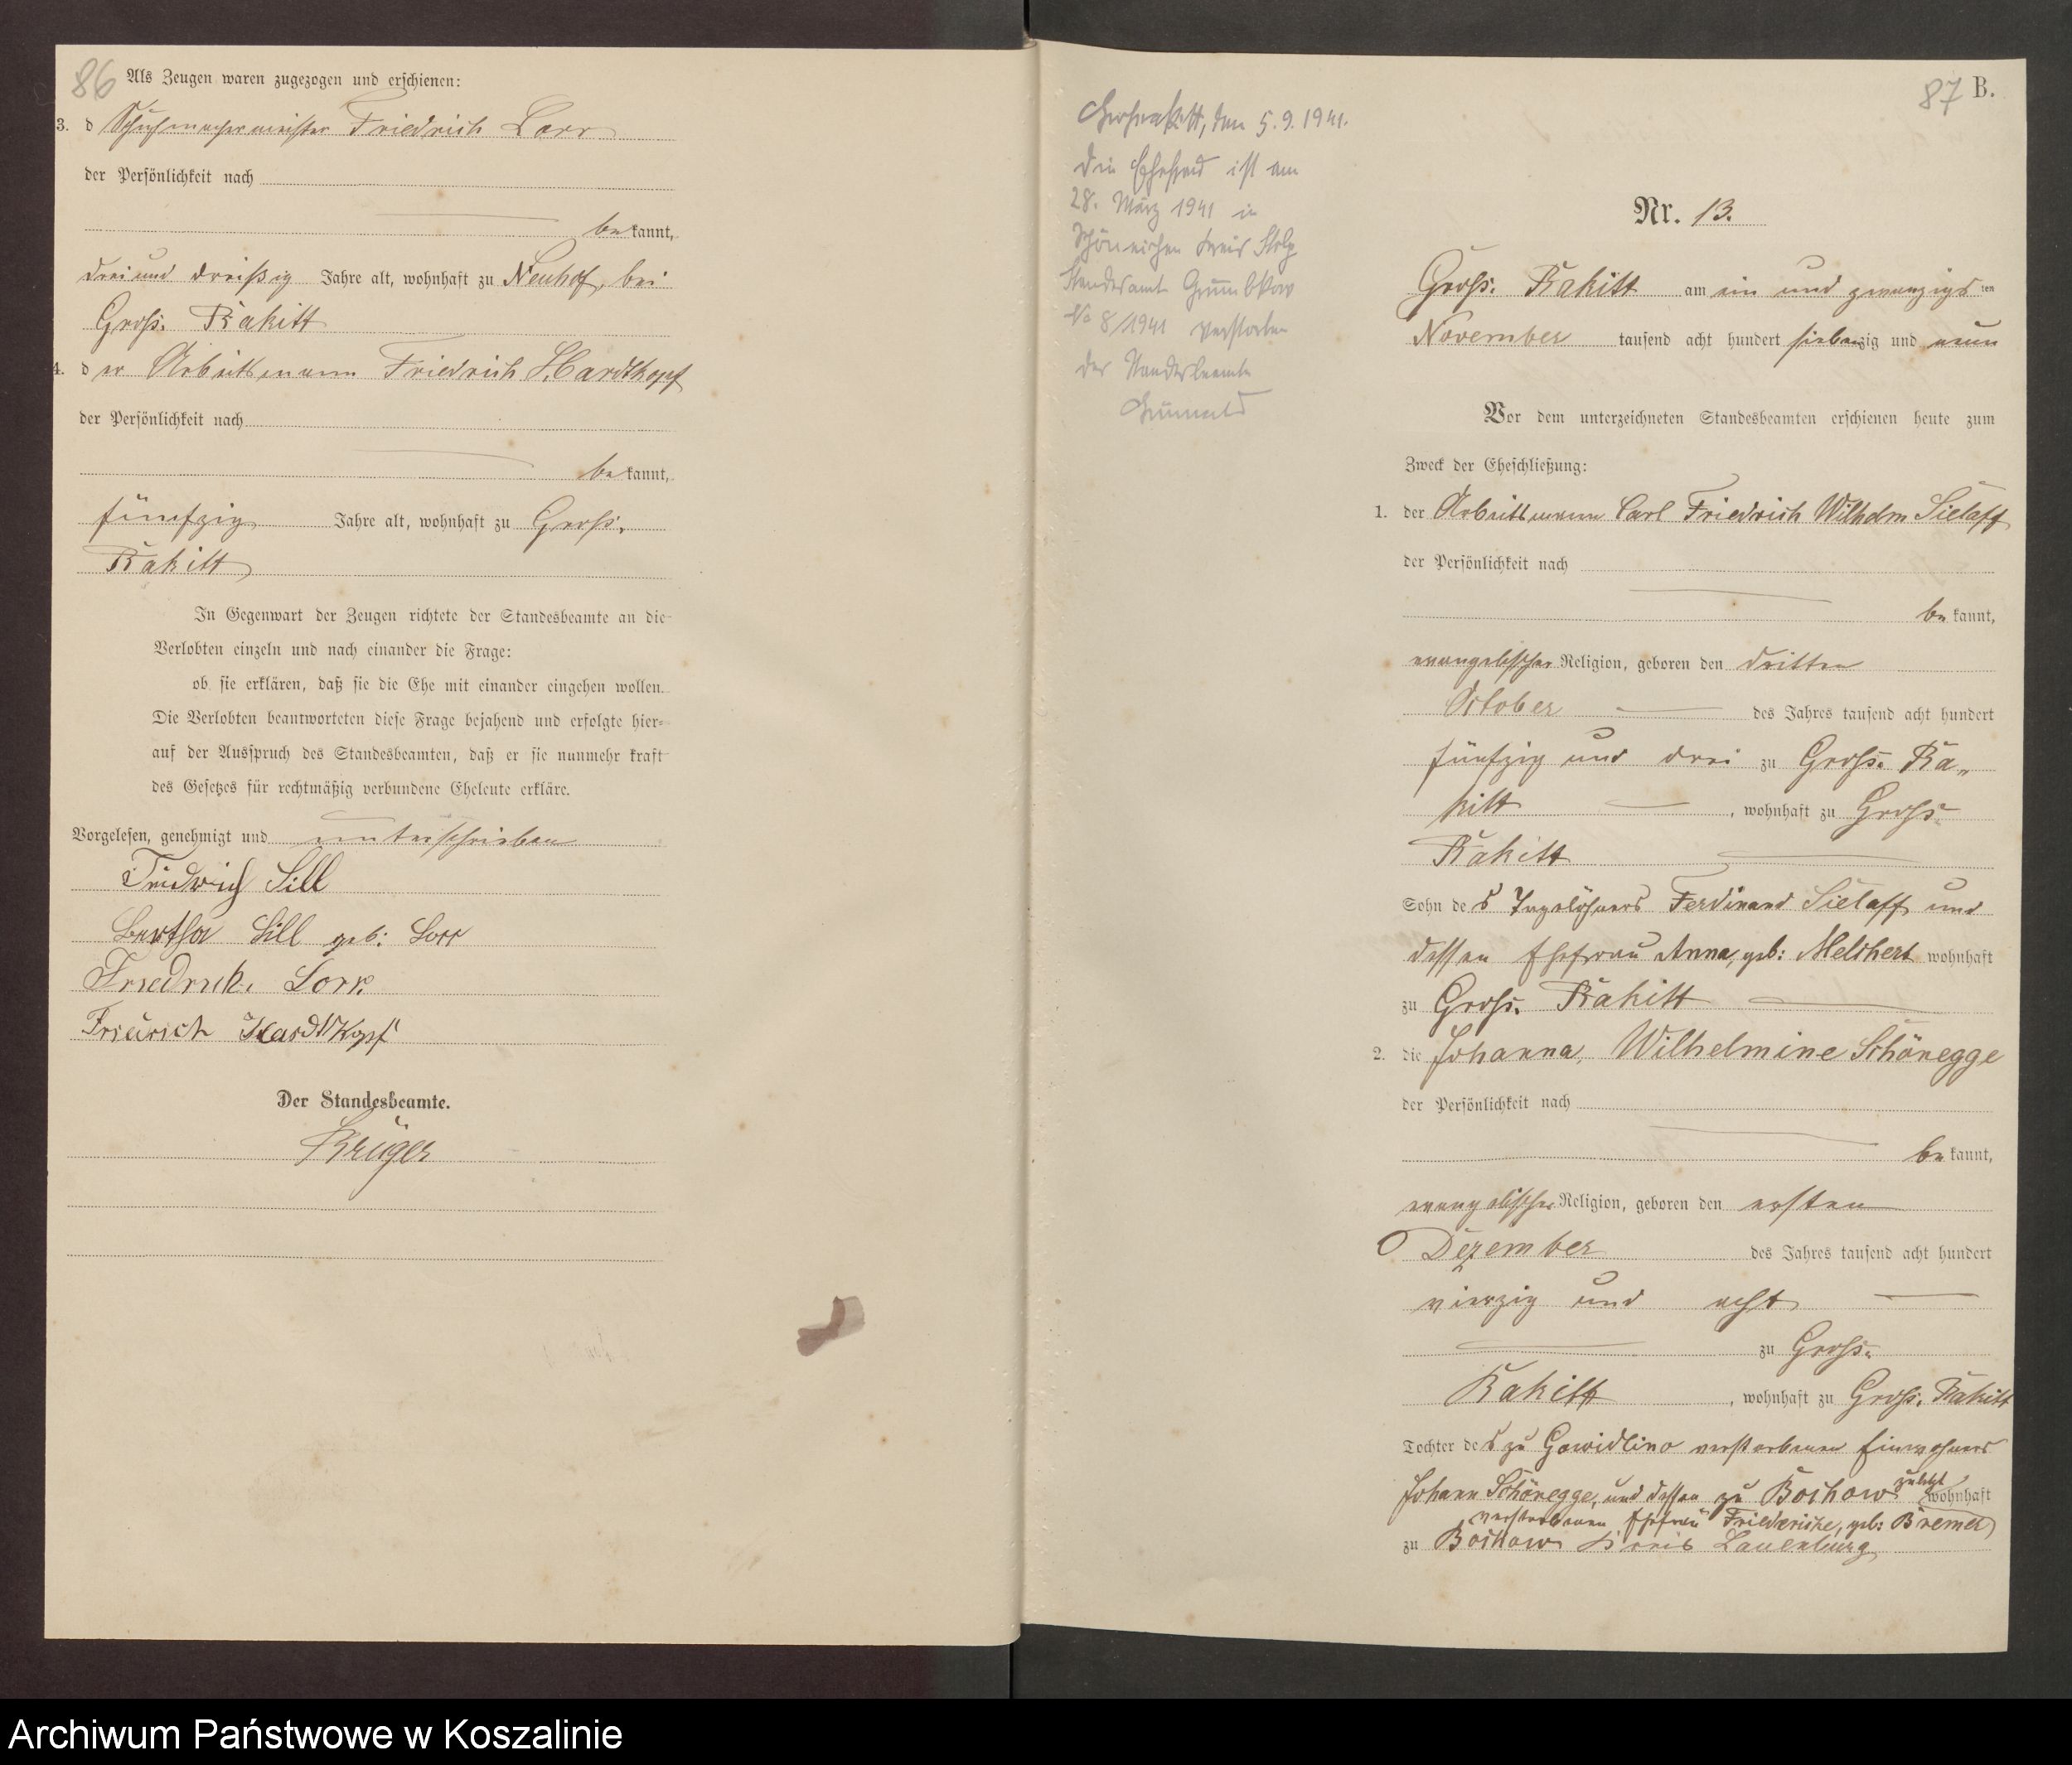 86
Als Zeugen waren zugezogen und erschienen:
3. d Schuhmachermeister Friedrich Lorr
der Persönlichkeit nach
be kannt,
drei und dreißig Jahre alt, wohnhaft zu Neuhof, bei
Groß. Rakitt
4. d er Arbeitsmann Friedrich Hardtkopf
der Persönlichkeit nach
be kannt,
fünfzig Jahre alt, wohnhaft zu Groß.
Rakitt
In Gegenwart der Zeugen richtete der Standesbeamte an die
Verlobten einzeln und nach einander die Frage:
ob sie erklären, daß sie die Ehe mit einander eingehen wollen.
Die Verlobten beantworteten diese Frage bejahend und erfolgte hier-
auf der Ausspruch des Standesbeamten, daß er sie nunmehr kraft
des Gesetzes für rechtmäßig verbundene Eheleute erkläre.
Vorgelesen, genehmigt und unterschrieben
Friedrich Sill
Bertha Sill geb: Lorr
Friedrich Lorr
Friedrich Hardtkopf
Der Standesbeamte.
Krüger
87 B.
Großrakitt, den 5.9.1941.
Die Ehefrau ist am
28. März 1941 in
Schöneichen Kreis Stolp
Standesamt Grumbkow
No 8/1941 verstorben
Der Standesbeamte
Nr. 13.
Groß. Rakitt am ein und zwanzigs ten
November tausend acht hundert siebenzig und neun
Vor dem unterzeichneten Standesbeamten erschienen heute zum
Zweck der Eheschließung:
1. der Arbeitsmann Carl Friedrich Wilhelm Sielaff
der Persönlichkeit nach
be kannt,
evangelischer Religion, geboren den dritten
October des Jahres tausend acht hundert
fünfzig und drei zu Groß. Ra-
kitt, wohnhaft zu Groß-
Rakitt
Sohn de s Tagelöhners Ferdinand Sielaff und
dessen Ehefrau Anna, geb: Melchert wohnhaft
zu Groß. Rakitt
2. die Johanna, Wilhelmine Schönegge
der Persönlichkeit nach
be kannt,
evangelischer Religion, geboren den ersten
Dezember des Jahres tausend acht hundert
vierzig und acht
zu Groß-
Rakitt, wohnhaft zu Groß. Rakitt
Tochter de s zu Gowidlino verstorbenen Einwohners
Johann Schönegge, und dessen zu Bochow zuletzt wohnhaft
verstorbenen Ehefrau Friederike, geb: Bremer
zu Bochow Kreis Lauenburg
Archiwum Państwowe w Koszalinie